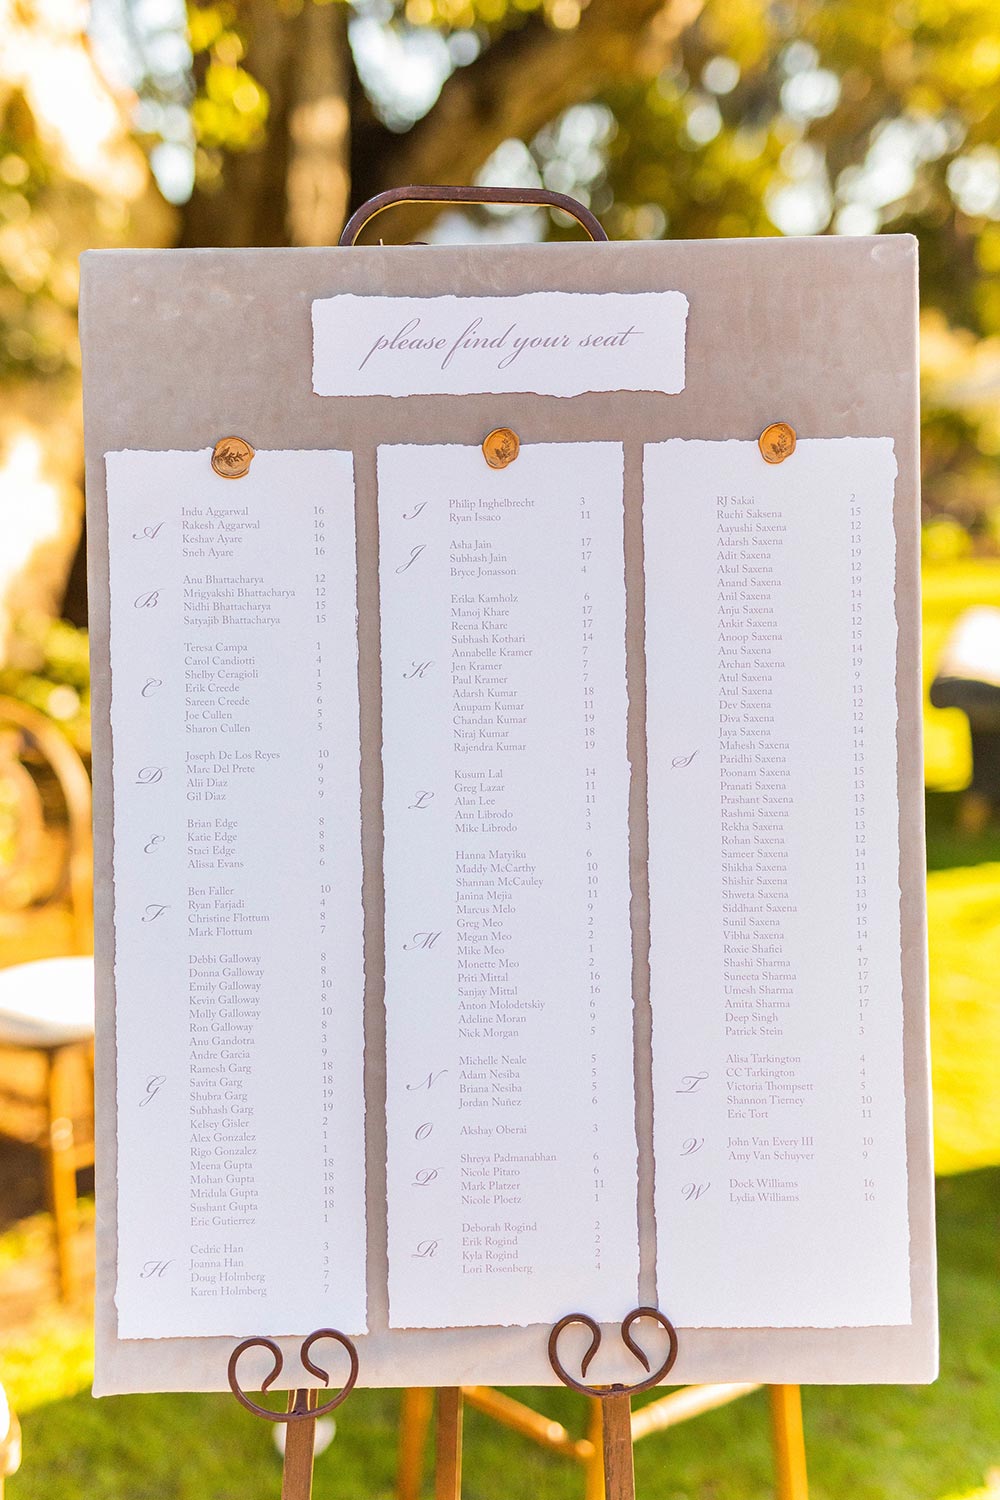 please find your seat
A
Indu Aggarwal 16
Rakesh Aggarwal 16
Keshav Ayare 16
Sneh Ayare 16
B
Anu Bhattacharya 12
Mrigyakshi Bhattacharya 12
Nidhi Bhattacharya 15
Satyajib Bhattacharya 15
C
Teresa Campa 1
Carol Candiotti 4
Shelby Ceragioli 1
Erik Creede 5
Sareen Creede 6
Joe Cullen 5
Sharon Cullen 5
D
Joseph De Los Reyes 10
Marc Del Prete 9
Alii Diaz 9
Gil Diaz 9
E
Brian Edge 8
Katie Edge 8
Staci Edge 8
Alissa Evans 6
F
Ben Faller 10
Ryan Farjadi 4
Christine Flottum 8
Mark Flottum 7
G
Debbi Galloway 8
Donna Galloway 8
Emily Galloway 10
Kevin Galloway 8
Molly Galloway 10
Ron Galloway 8
Anu Gandotra 3
Andre Garcia 9
Ramesh Garg 18
Savita Garg 18
Shubra Garg 19
Subhash Garg 19
Kelsey Gisler 2
Alex Gonzalez 1
Rigo Gonzalez 1
Meena Gupta 18
Mohan Gupta 18
Mridula Gupta 18
Sushant Gupta 18
Eric Gutierrez 1
H
Cedric Han 3
Joanna Han 3
Doug Holmberg 7
Karen Holmberg 7
I
Philip Inghelbrecht 3
Ryan Issaco 11
J
Asha Jain 17
Subhash Jain 17
Bryce Jonasson 4
K
Erika Kamholz 6
Manoj Khare 17
Reena Khare 17
Subhash Kothari 14
Annabelle Kramer 7
Jen Kramer 7
Paul Kramer 7
Adarsh Kumar 18
Anupam Kumar 11
Chandan Kumar 19
Niraj Kumar 18
Rajendra Kumar 19
L
Kusum Lal 14
Greg Lazar 11
Alan Lee 11
Ann Librodo 3
Mike Librodo 3
M
Hanna Matyiku 6
Maddy McCarthy 10
Shannan McCauley 10
Janina Mejia 11
Marcus Melo 9
Greg Meo 2
Megan Meo 2
Mike Meo 1
Monette Meo 2
Priti Mittal 16
Sanjay Mittal 16
Anton Molodetskiy 6
Adeline Moran 9
Nick Morgan 5
N
Michelle Neale 5
Adam Nesiba 5
Briana Nesiba 5
Jordan Nuñez 6
O
Akshay Oberai 3
P
Shreya Padmanabhan 6
Nicole Pitaro 6
Mark Platzer 11
Nicole Ploetz 1
R
Deborah Rogind 2
Erik Rogind 2
Kyla Rogind 2
Lori Rosenberg 4
S
RJ Sakai 2
Ruchi Saksena 15
Aayushi Saxena 12
Adarsh Saxena 13
Adit Saxena 19
Akul Saxena 12
Anand Saxena 19
Anil Saxena 14
Anju Saxena 15
Ankit Saxena 12
Anoop Saxena 15
Anu Saxena 14
Archan Saxena 19
Atul Saxena 9
Atul Saxena 13
Dev Saxena 12
Diva Saxena 12
Jaya Saxena 14
Mahesh Saxena 14
Paridhi Saxena 13
Poonam Saxena 15
Pranati Saxena 13
Prashant Saxena 13
Rashmi Saxena 15
Rekha Saxena 13
Rohan Saxena 12
Sameer Saxena 14
Shikha Saxena 11
Shishir Saxena 13
Shweta Saxena 13
Siddhant Saxena 19
Sunil Saxena 15
Vibha Saxena 14
Roxie Shafiei 4
Shashi Sharma 17
Suneeta Sharma 17
Umesh Sharma 17
Amita Sharma 17
Deep Singh 1
Patrick Stein 3
T
Alisa Tarkington 4
CC Tarkington 4
Victoria Thompsett 5
Shannon Tierney 10
Eric Tort 11
V
John Van Every III 10
Amy Van Schuyver 9
W
Dock Williams 16
Lydia Williams 16